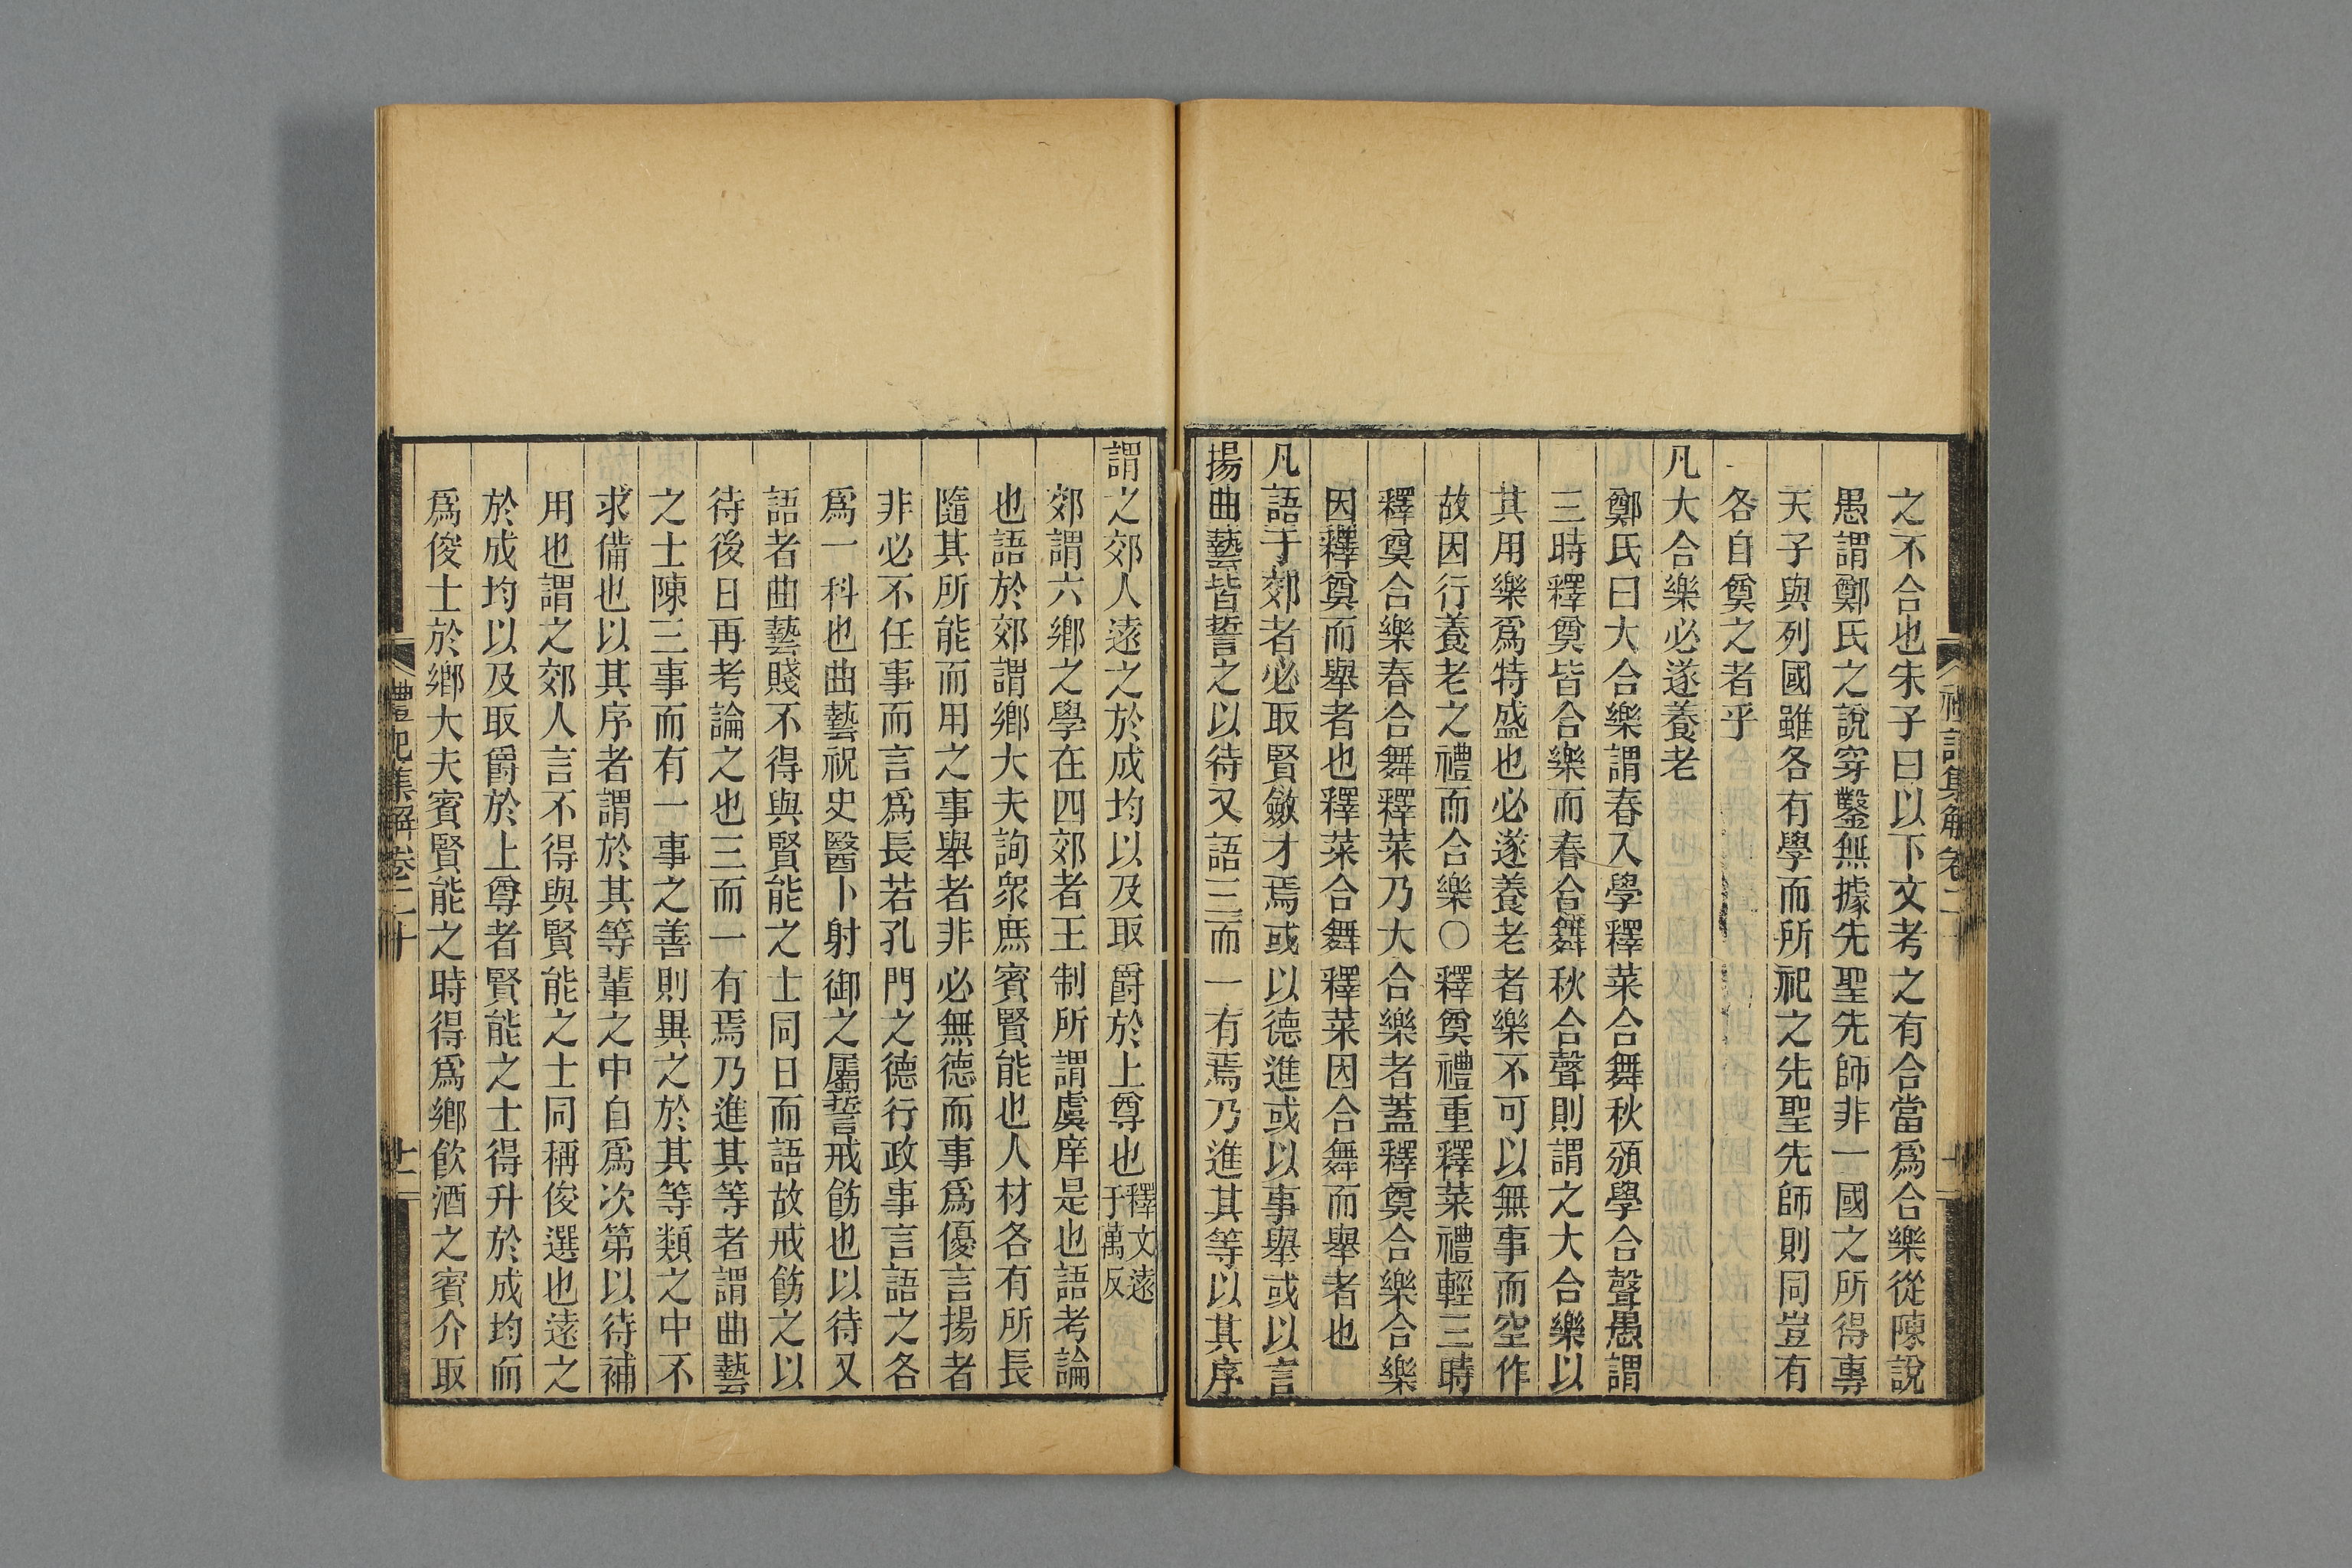 之不合也朱子曰以下文考之有合當爲合樂從陳說
愚謂鄭氏之說穿鑿無據先聖先師非一國之所得專
天子與列國雖各有學而所祀之先聖先師則同豈有
各自奠之者乎
凡大合樂必遂養老
鄭氏曰大合樂謂春入學釋菜合舞秋頒學合聲愚謂
三時釋奠皆合樂而春合舞秋合聲則謂之大合樂以
其用樂爲特盛也必遂養老者樂不可以無事而空作
故因行養老之禮而合樂○釋奠禮重釋菜禮輕三時
釋奠合樂春合舞釋菜乃大合樂者蓋釋奠合樂合樂
因釋奠而舉者也釋菜合舞釋菜因合舞而舉者也
凡語于郊者必取賢斂才焉或以德進或以事舉或以言
揚曲藝皆誓之以待又語三而一有焉乃進其等以其序
謂之郊人遠之於成均以及取爵於上尊也釋文遠
于萬反
郊謂六鄉之學在四郊者王制所謂虞庠是也語考論
也語於郊謂鄉大夫詢衆庶賓賢能也人材各有所長
隨其所能而用之事舉者非必無德而事爲優言揚者
非必不任事而言爲長若孔門之德行政事言語之各
爲一科也曲藝祝史醫卜射御之屬誓戒飭也以待又
語者曲藝賤不得與賢能之士同日而語故戒飭之以
待後日再考論之也三而一有焉乃進其等者謂曲藝
之士陳三事而有一事之善則異之於其等類之中不
求備也以其序者謂於其等輩之中自爲次第以待補
用也謂之郊人言不得與賢能之士同稱俊選也遠之
於成均以及取爵於上尊者賢能之士得升於成均而
爲俊士於鄉大夫賓賢能之時得爲鄉飲酒之賓介取
禮記集解卷二十